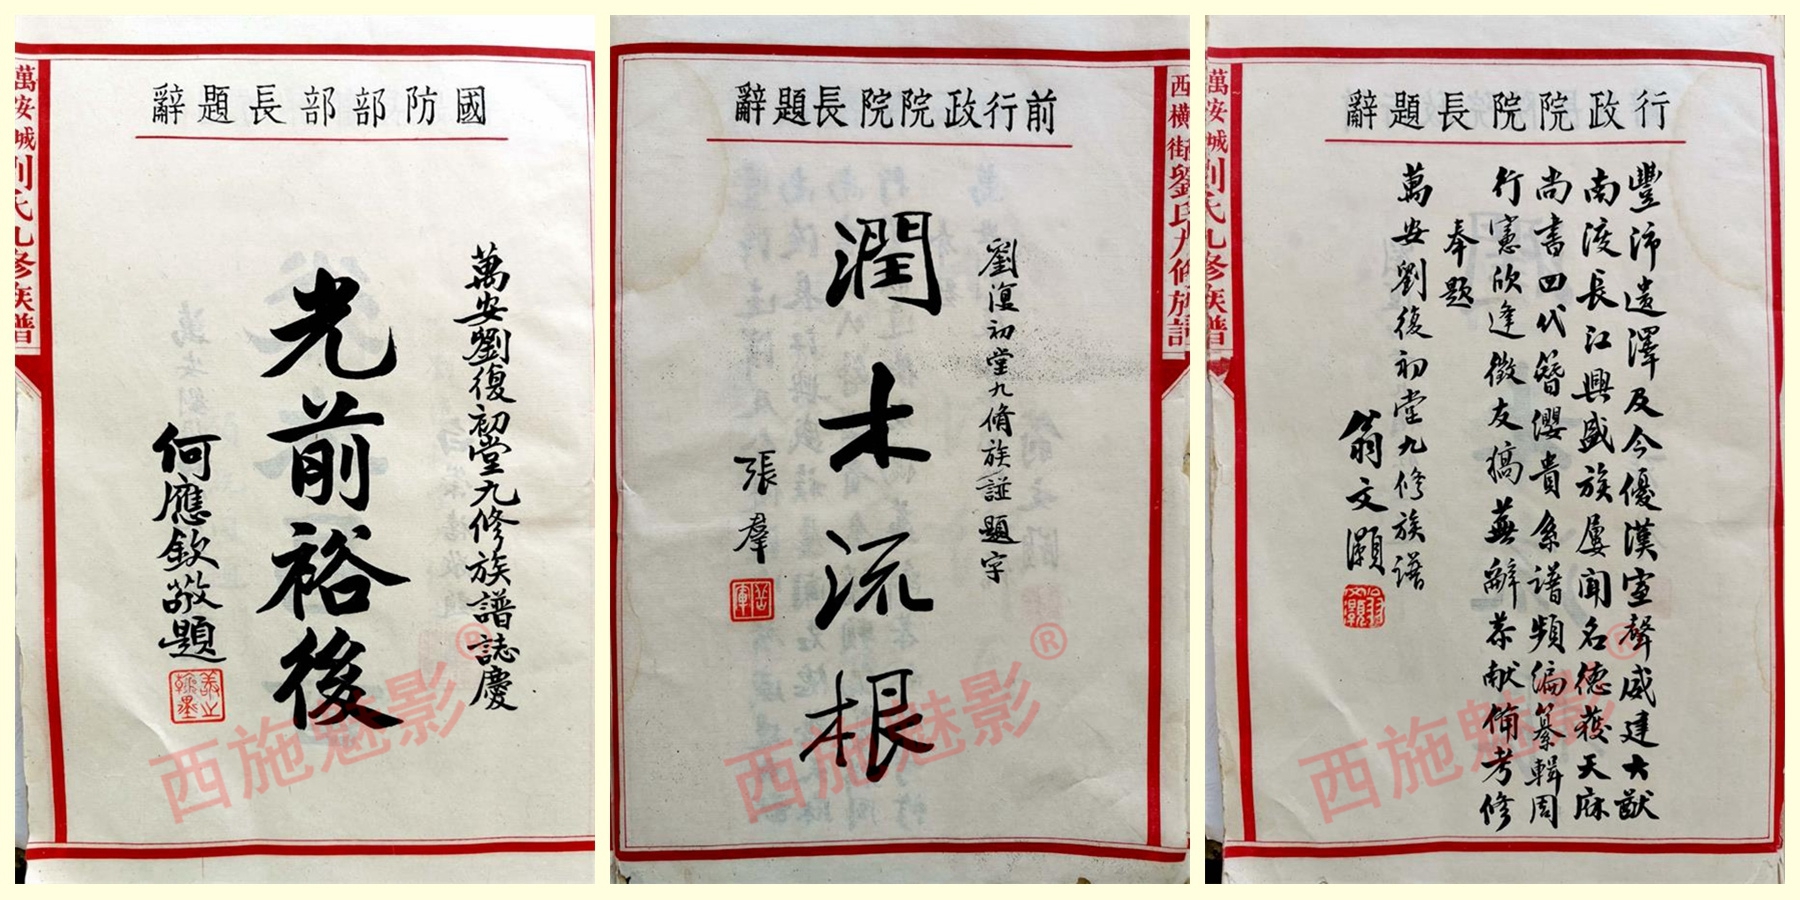 國防部部長題辭
萬安劉復初堂九修族譜誌慶
光前裕後
何應欽敬題
萬安城劉氏九修族譜
西施魅影®
前行政院院長題辭
劉復初堂九脩族譜題字
潤木流根
張羣
西橫街劉氏九修族譜
西施魅影®
行政院院長題辭
豐沛遺澤及今優漢室聲威建大猷
南渡長江興盛族屢聞名德穫天庥
尚書四代簪纓貴系譜頻編纂輯周
行憲欣逢徵友稿蕪辭恭献備考修
奉題
萬安劉復初堂九修族譜
翁文灝
翁文灝
萬安城劉氏九修族譜
西施魅影®